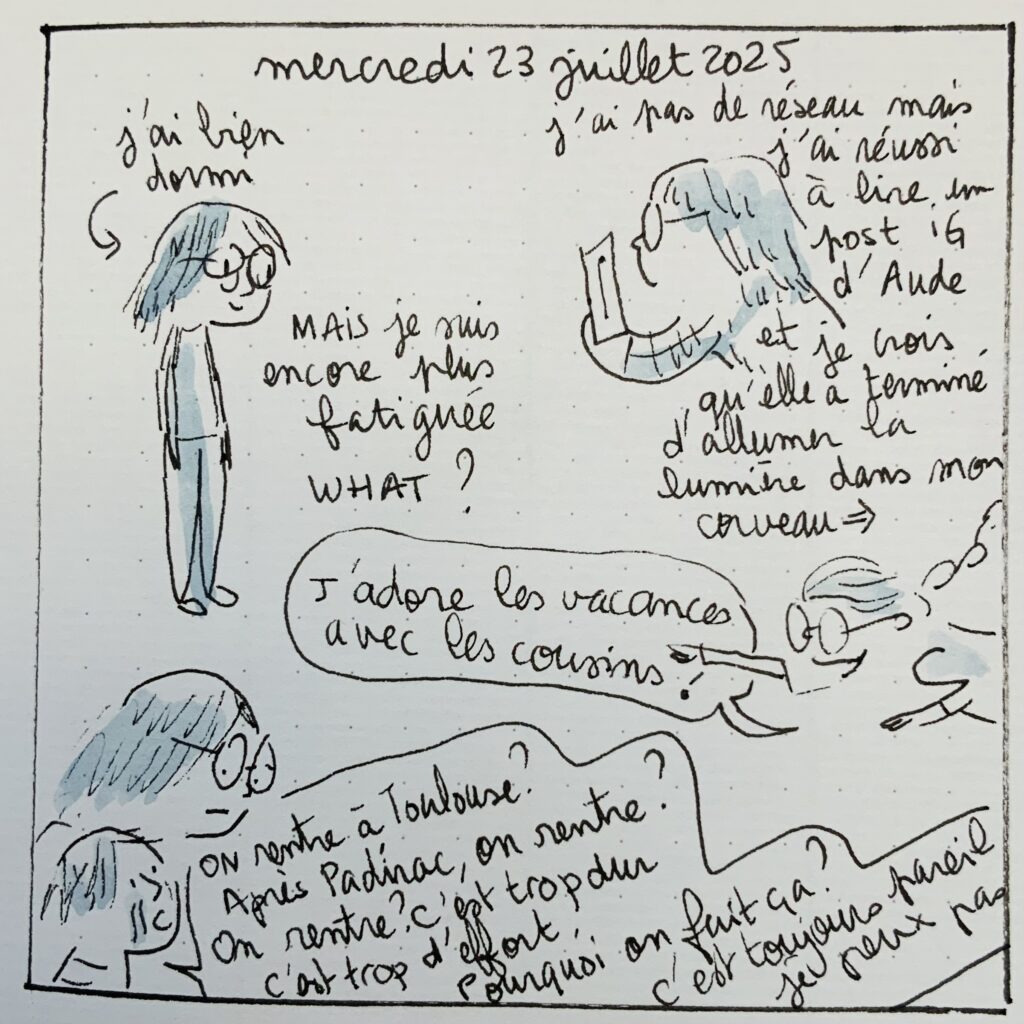 mercredi 23 juillet 2025
j'ai bien
dormi
MAIS je suis
encore plus
fatiguée
WHAT ?
j'ai pas de réseau mais
j'ai réussi
à lire un
post IG
d'Aude
et je crois
qu'elle a terminé
d'allumer la
lumière dans mon
cerveau ⇒
J'adore les vacances
avec les cousins !
ON rentre à Toulouse ?
Après Padirac, on rentre ?
On rentre ? c'est trop dur
c'est trop d'effort !
Pourquoi on fait ça ?
c'est toujours pareil
je peux pas